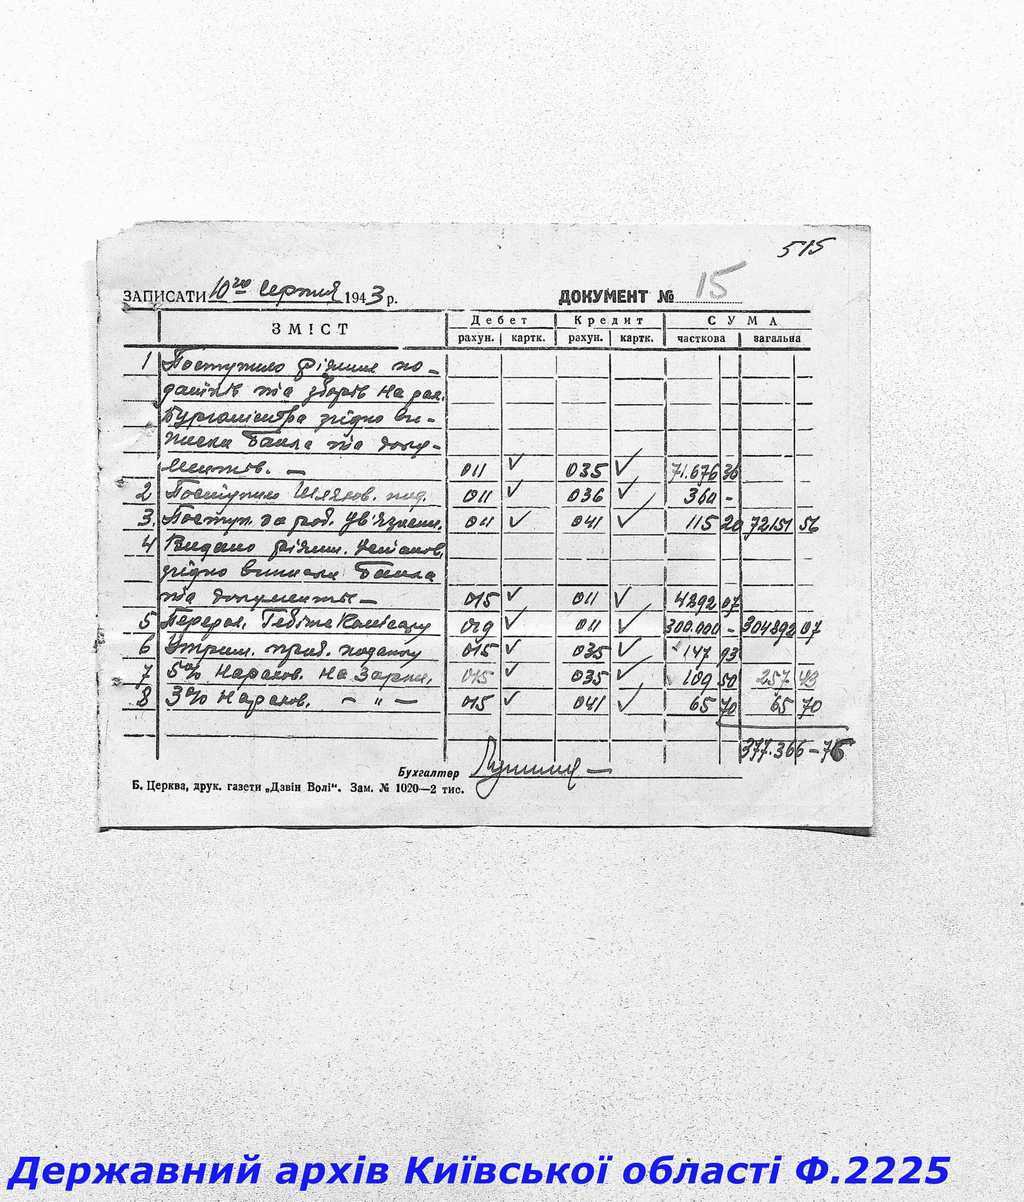 515
ЗАПИСАТИ 10го серпня 1943 р. ДОКУМЕНТ № 15
ЗМІСТ Дебет Кредит СУМА
рахун. картк. рахун. картк. часткова загальна
1 Поступило різних по-
датків та зборів на рах.
Бургомістра згідно ви-
писки Банка та доку-
ментів. — 011 ✓ 035 ✓ 71.676 36
2 Поступило Шляхов. под. 011 ✓ 036 ✓ 360 -
3 Поступ. за роб. 011 ✓ 041 ✓ 115 20 72151 56
4 Видано різним. Установ.
згідно виписки Банка
та документів — 015 ✓ 011 ✓ 4892 07
5 Перерах. Гебітс Комісару 029 ✓ 011 ✓ 300.000 - 304892 07
6 Утрим. приб. податку 015 ✓ 035 ✓ 147 93
7 5% Нарахов. на Зарпл. 015 ✓ 035 ✓ 109 50 257 43
8 3% Нарахов. — " — 015 ✓ 041 ✓ 65 70 65 70
377.366-76
Бухгалтер
Б. Церква, друк. газети „Дзвін Волі“. Зам. № 1020—2 тис.
Державний архів Київської області Ф.2225